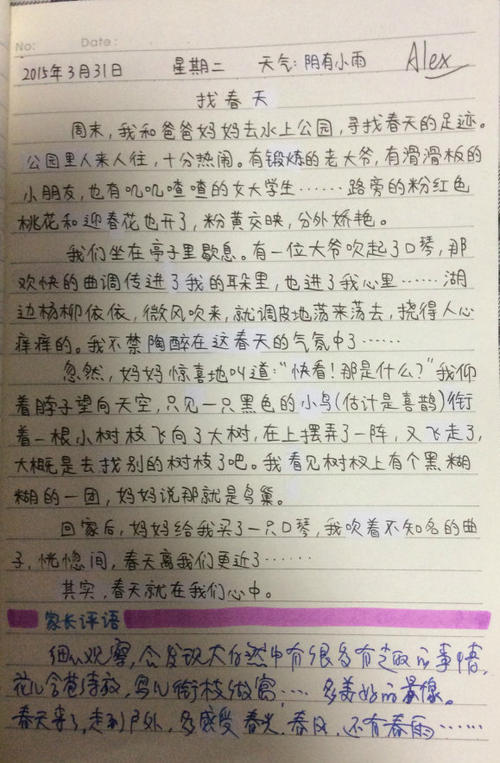 No: Date:
2015年3月31日 星期二 天气:阴有小雨 Alex
找春天
周末，我和爸爸妈妈去水上公园，寻找春天的足迹。
公园里人来人往，十分热闹。有锻炼的老大爷，有滑滑板的
小朋友，也有叽叽喳喳的女大学生……路旁的粉红色
桃花和迎春花也开了，粉黄交映，分外娇艳。
我们坐在亭子里歇息。有一位大爷吹起了口琴，那
欢快的曲调传进了我的耳朵里，也进了我心里……湖
边杨柳依依，微风吹来，就调皮地荡来荡去，挠得人心
痒痒的。我不禁陶醉在这春天的气氛中了……
忽然，妈妈惊喜地叫道：“快看！那是什么？”我仰
着脖子望向天空，只见一只黑色的小鸟(估计是喜鹊)衔
着一根小树枝飞向了大树，在上摆弄了一阵，又飞走了，
大概是去找别的树枝了吧。我看见树杈上有个黑糊
糊的一团，妈妈说那就是鸟巢。
回家后，妈妈给我买了一只口琴，我吹着不知名的曲
子，恍惚间，春天离我们更近了……
其实，春天就在我们心中。
家长评语
细心观察，会发现大自然中有很多有趣的事情，
花儿含苞待放，鸟儿衔枝做窝……多美好的景像。
春天来了，走到户外，多感受春光、春风，还有春雨……